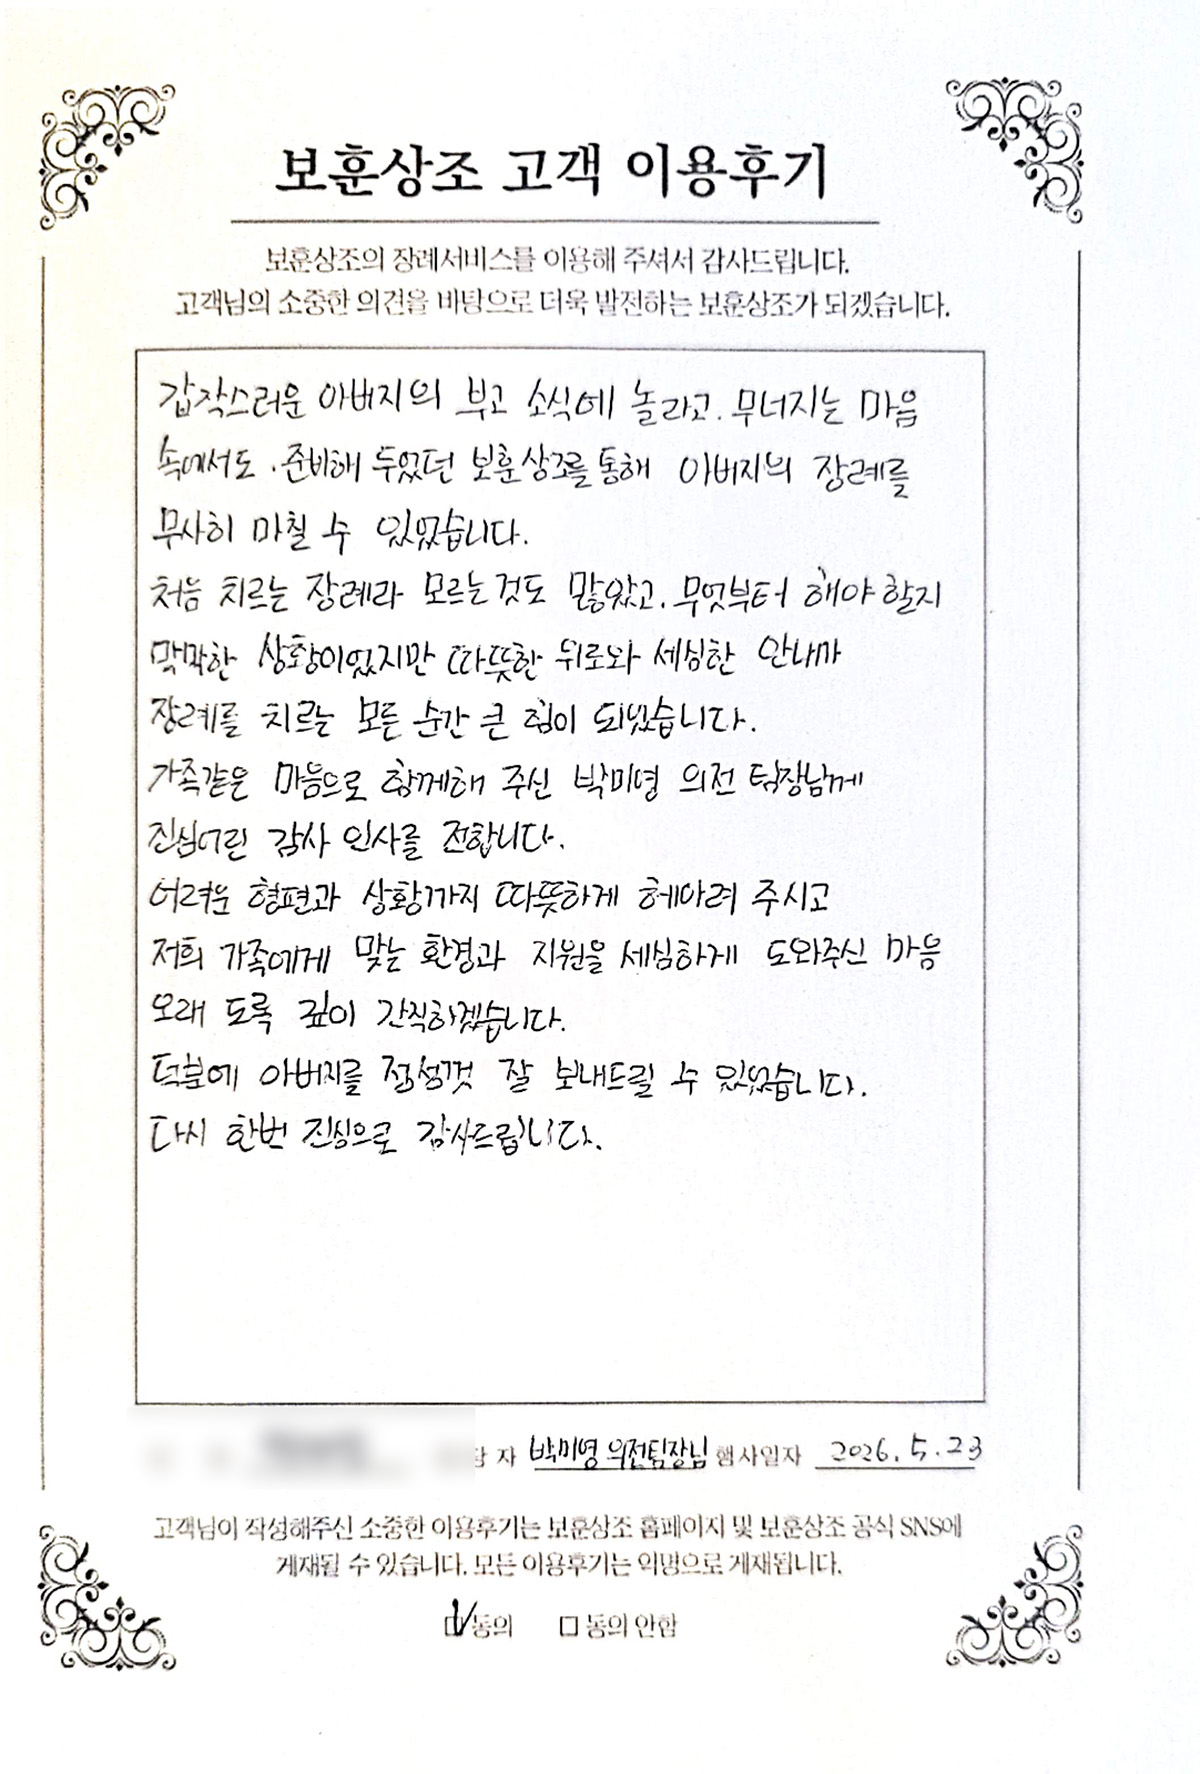 보훈상조 고객 이용후기
보훈상조의 장례서비스를 이용해 주셔서 감사드립니다.
고객님의 소중한 의견을 바탕으로 더욱 발전하는 보훈상조가 되겠습니다.
갑작스러운 아버지의 부고 소식에 놀라고. 무너지는 마음
속에서도. 준비해 두었던 보훈상조를 통해 아버지의 장례를
무사히 마칠 수 있었습니다.
처음 치르는 장례라 모르는것도 많았고. 무엇부터 해야 할지
막막한 상황이었지만 따뜻한 위로와 세심한 안내가
장례를 치르는 모든 순간 큰 힘이 되었습니다.
가족같은 마음으로 함께해 주신 박미영 의전 팀장님께
진심어린 감사 인사를 전합니다.
어려운 형편과 상황까지 따뜻하게 헤아려 주시고
저희 가족에게 맞는 환경과 지원을 세심하게 도와주신 마음
오래 도록 깊이 간직하겠습니다.
덕분에 아버지를 정성껏 잘 보내드릴 수 있었습니다.
다시 한번 진심으로 감사드립니다.
자 박미영 의전팀장님 행사일자 2026. 5. 23
고객님이 작성해주신 소중한 이용후기는 보훈상조 홈페이지 및 보훈상조 공식 SNS에
게재될 수 있습니다. 모든 이용후기는 익명으로 게재됩니다.
동의 동의 안함